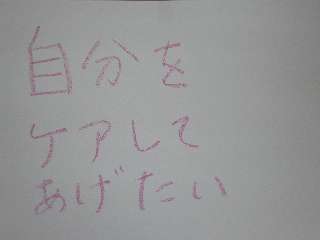 自分を
ケアして
あげたい